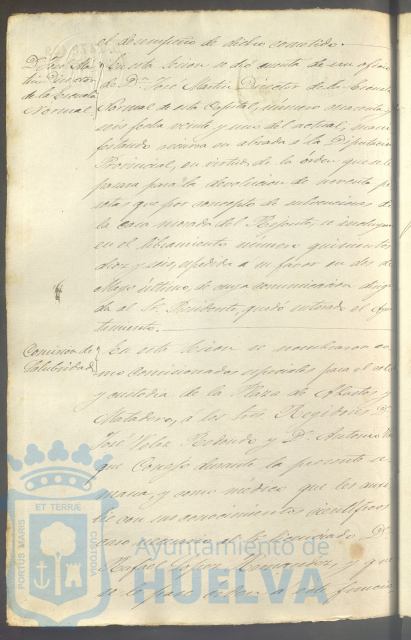 el desempeño de dicho cometido.
Dn. José Mar-
tin Director
de la Escuela
Normal
En esta sesion se dió cuenta de un oficio
de Dn. José Martin Director de la Escuela
Normal de esta Capital, número cuarenta y
seis fecha veinte y uno del actual, mani-
festando acudia en alzada a la Diputacion
Provincial, en virtud de la órden que se le
pasara para la devolucion de noventa pe-
setas que por concepto de subvenciones de
la casa morada del Regente, se incluyeron
en el libramiento número quinientos
diez y seis, espedido a su favor en dos de
Mayo último, de cuya comunicacion dirigi-
da al Sr. Presidente, quedó enterado el Ayun-
tamiento.
Comision de
Salubridad
En esta sesion se nombraron co-
mo comisionados especiales para el celo
y custodia de la Plaza de Abastos y
Matadero, á los Sres. Regidores Dn.
José Velez Redondo y Dn. Antonio
que Consejo durante la presente se-
mana, y como médico que les auxi-
lie con sus conocimientos cientificos
caso necesario al Licenciado Dn.
Rafael Lopez Hernandez, y que
se le pase á sus funcio
PORTUS MARIS
ET TERRÆ
CUSTODIA
Ayuntamiento de
HUELVA